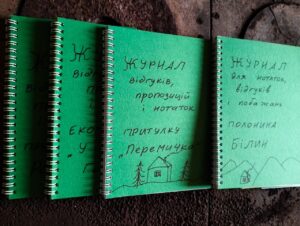 Ж
ВІД
ЖУ
ВІДГ
П
ЕКО
"У
ЖУРНАЛ
ВІДГУКІВ,
ПРОПОЗИЦІЙ
І НОТАТОК
ПРИТУЛКУ
"Перемичка"
ЖУРНАЛ
для нотаток,
відгуків
і побажань
ПОЛОНИНА
БІЛИН